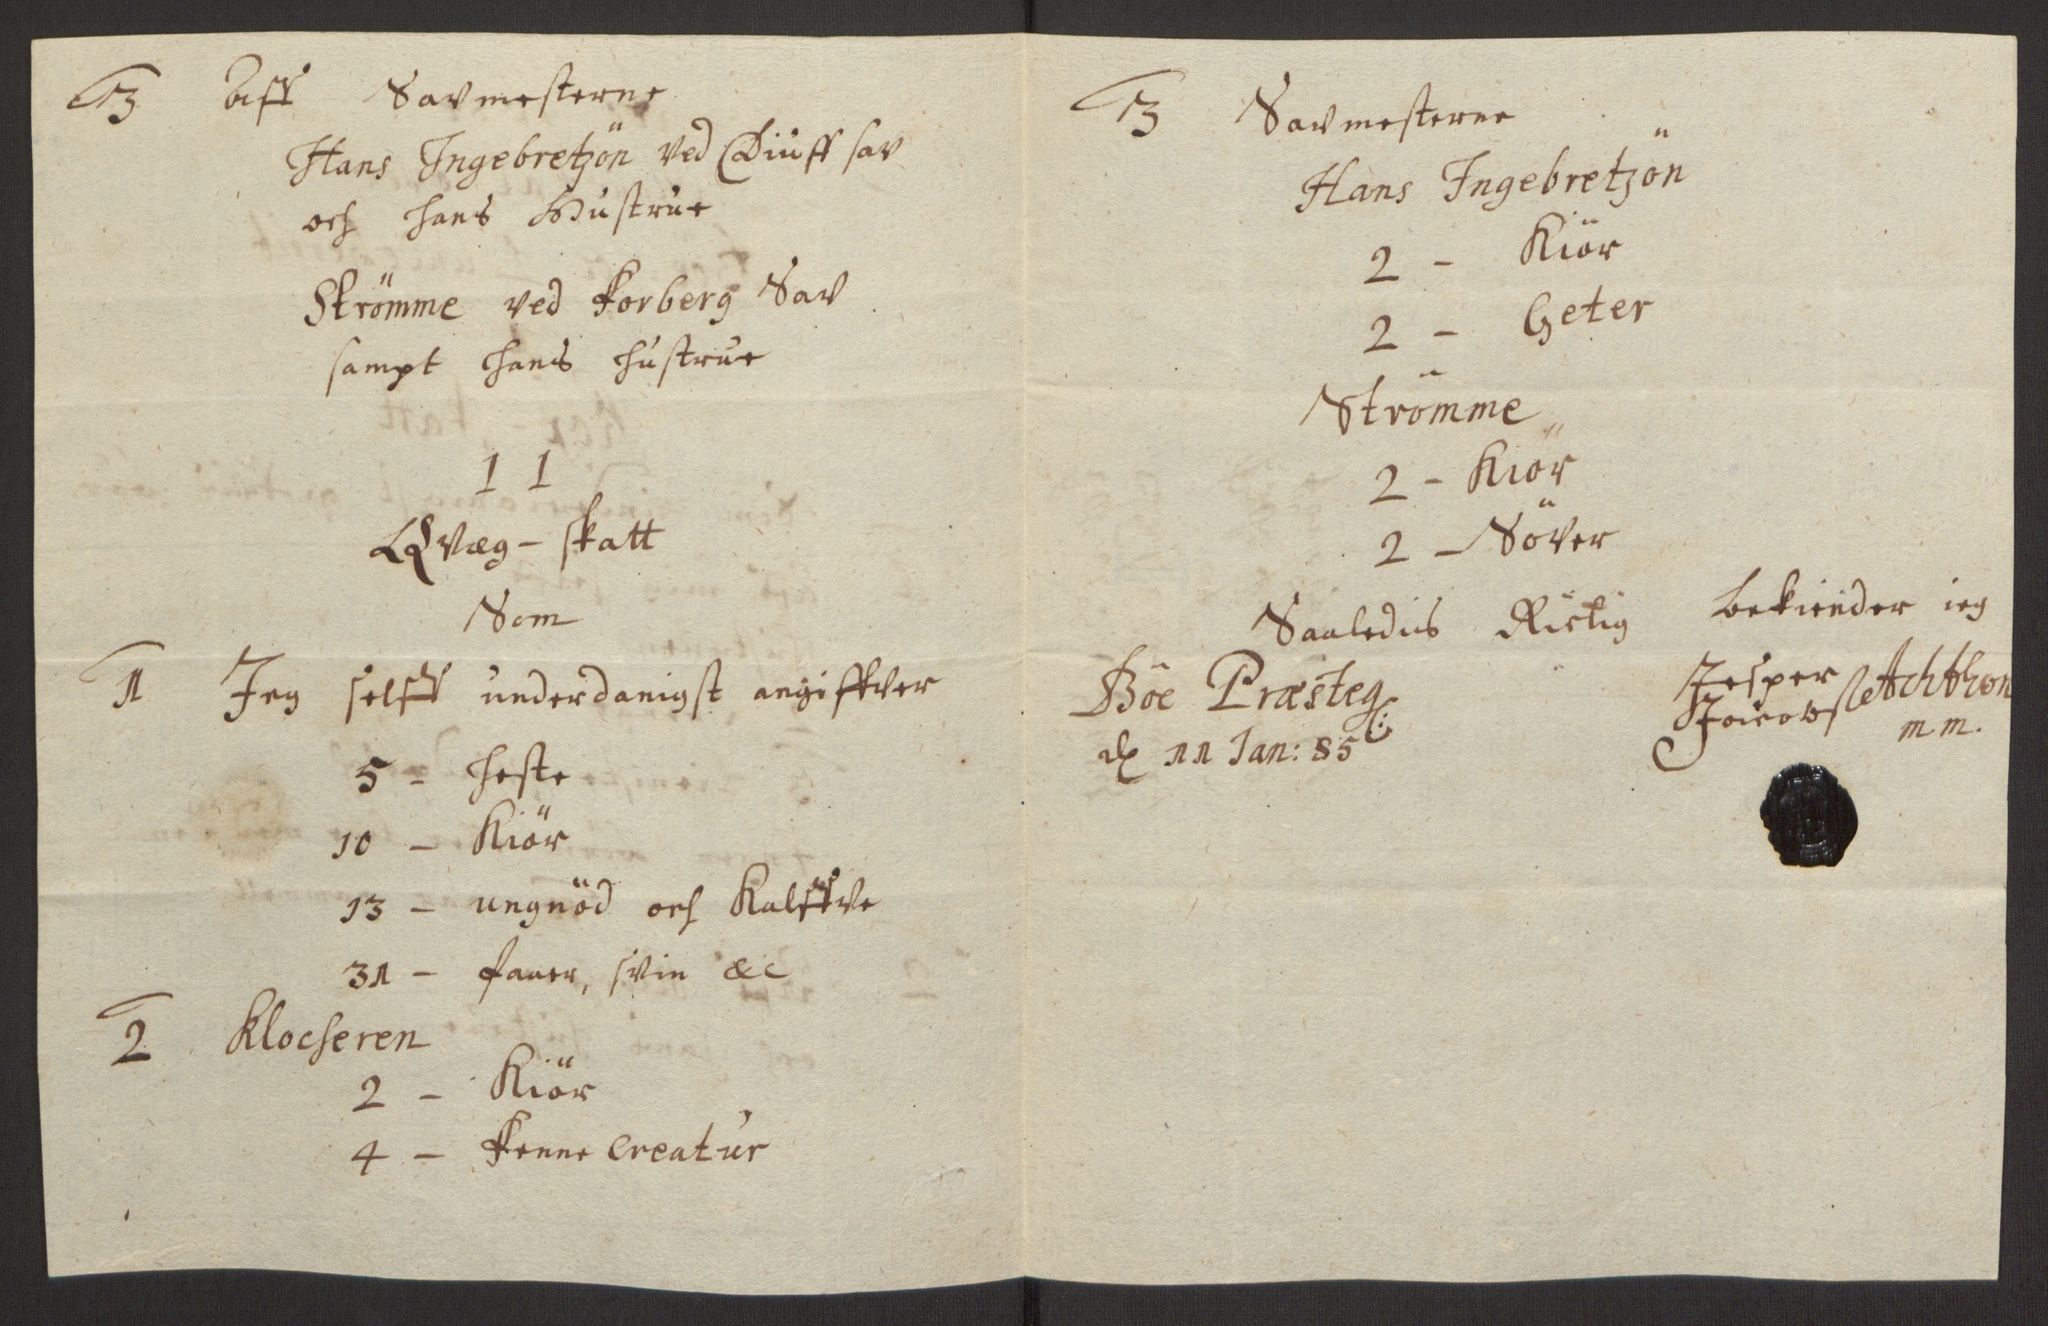 3 Aff Savmesterne
Hans Ingebretzön ved Diuff sav
och hans Hustrue
Strömme ved Forberg Sav
sampt hans hustrue
11
Qvæg - skatt
Som
1 Jeg selff underdanigst angiffver
5 - heste
10 - Kiör
13 - ungnöd och Kalffve
31 - faaer, svin &c
2 Klocheren
2 - Kiör
4 - Creatur
3 Savmesterne
Hans Ingebretzön
2 - Kiör
2 - Geter
Strömme
2 - Kiör
2 - Söver
Saaledis Rictig bekiender ieg
Böe Præsteg:
d. 11 Jan: 85
Jesper
Jacobs Achthon
m m.